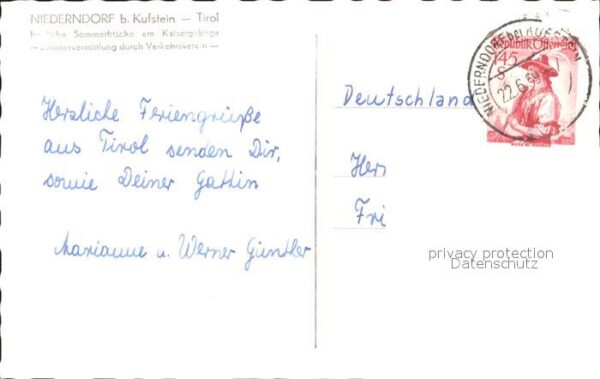 NIEDERNDORF b. Kufstein — Tirol
Sommerfrische am Kaisergebirge
Zimmervermittlung durch Verkehrsverein —
Herzliche Feriengrüße
aus Tirol senden Dir,
sowie Deiner Gattin
Marianne u. Werner Günther
NIEDERNDORF bei KUFSTEIN
22.6.59
Republik Österreich
1.45
S
Deutschland
Herr
Fri
privacy protection
Datenschutz